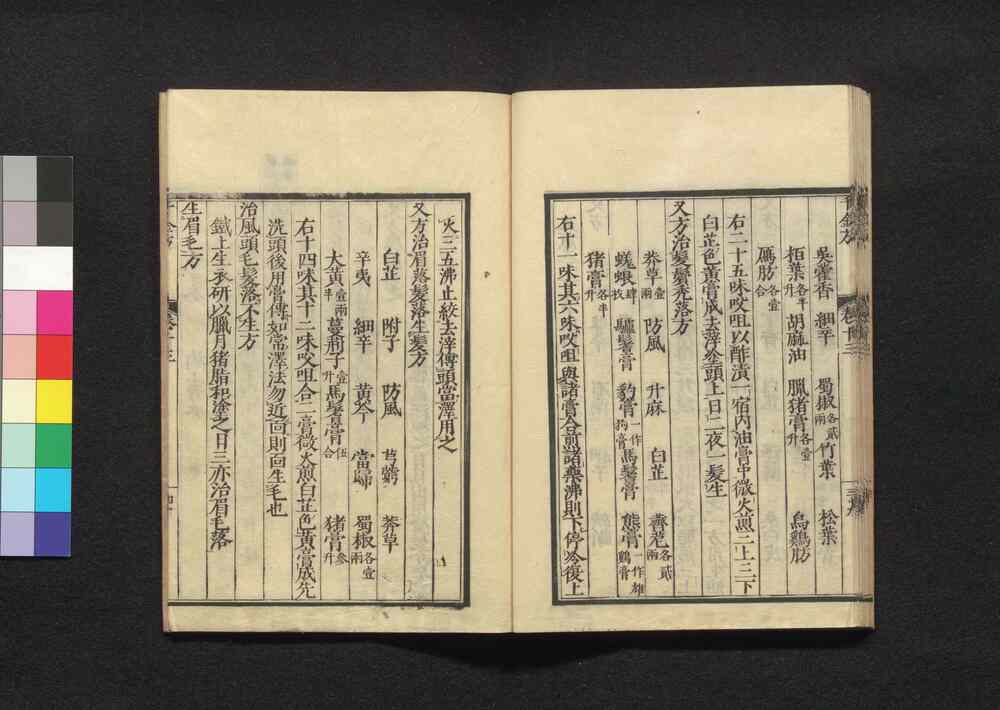 吳藿香 細辛 蜀椒各貳兩 竹葉 松葉
栢葉各半升 胡麻油 臘猪膏各壹升 烏鷄肪
鴈肪各壹合
右二十五味㕮咀以酢漬一宿內油膏中微火煎三上三下
白芷色黃膏成去滓塗頭上日二夜一髮生
又方治髮鬢禿落方
莽草壹兩 防風 升麻 白芷 薺苨各貳兩
蜣蜋肆枚 驢鬐膏 豹膏一作狗膏 馬鬐膏 熊膏一作雄鷄膏
猪膏各半升
右十一味其六味㕮咀與諸膏合煎諸藥沸則下停冷復上
火三五沸止絞去滓傅頭當澤用之
又方治眉落髮落生髮方
白芷 附子 防風 芎藭 莽草
辛夷 細辛 黃芩 當歸 蜀椒各壹兩
大黃壹兩半 蔓荊子壹升 馬鬐膏伍合 猪膏參升
右十四味其十二味㕮咀合二膏微火煎白芷色黃膏成先
洗頭後用膏傅如常澤法勿近面則面生毛也
治風頭毛髮落不生方
鐵上生衣研以臘月猪脂和塗之日三亦治眉毛落
生眉毛方